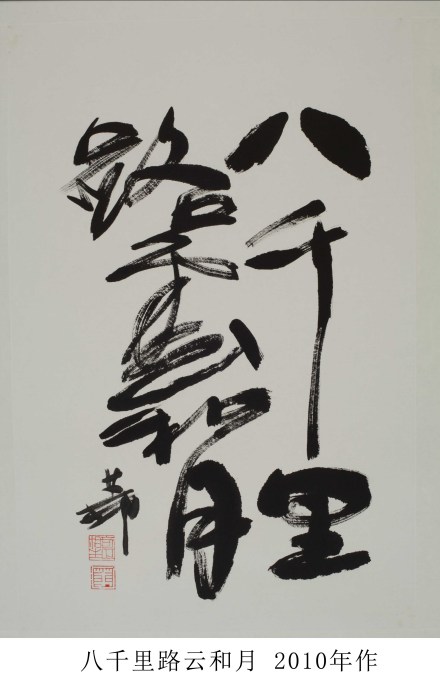 八千里
路云和月
八千里路云和月 2010年作